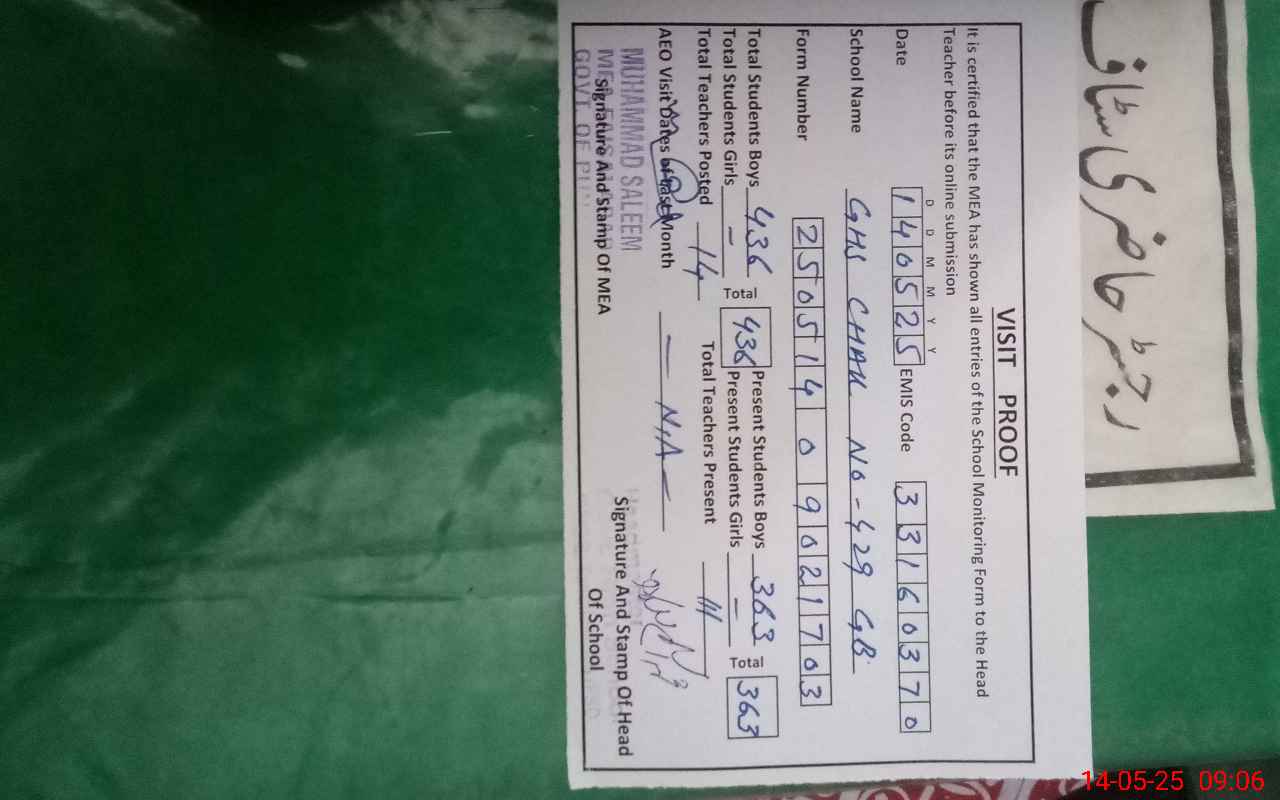 رجسٹر حاضری سٹاف
VISIT PROOF
It is certified that the MEA has shown all entries of the School Monitoring Form to the Head
Teacher before its online submission
D D M M Y Y
Date 140525 EMIS Code 33160370
School Name GHS CHAK NO-429 GB
Form Number 25051409021703
Total Students Boys 436 Total 436 Present Students Boys 363 Total 363
Total Students Girls - Present Students Girls -
Total Teachers Posted 14 Total Teachers Present 11
AEO Visit Dates of Last Month — N.A —
MUHAMMAD SALEEM
MEA FAISALABAD
GOVT OF PUN
Signature And Stamp Of MEA
Signature And Stamp Of Head
Of School
14-05-25 09:06